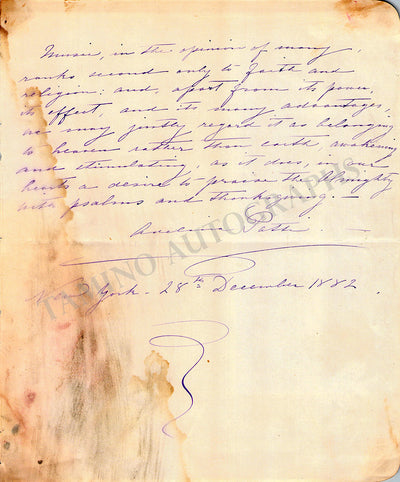 Music, in the opinion of many,
ranks second only to faith and
religion: and, apart from its power,
its effect, and its many advantages,
we may justly regard it as belonging
to heaven rather than earth, awakening
and stimulating, as it does, in our
hearts a desire to praise the Almighty
with psalms and thanksgiving. –
Adelina Patti
New York. 28th December 1882.
TAMINO AUTOGRAPHS